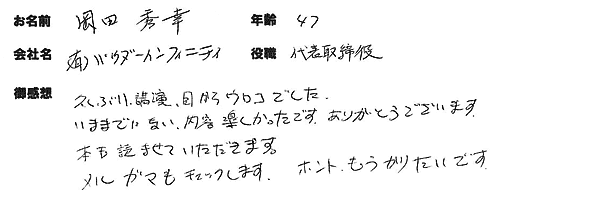 お名前 岡田 秀幸 年齢 47
会社名 (有)パウダーインフィニティ 役職 代表取締役
御感想 久しぶり、講演、目からウロコでした.
いままでにない、内容 楽しかったです. ありがとうございます.
本も読ませていただきます.
メルマガもチェックします. ホント、もうかりたいです.